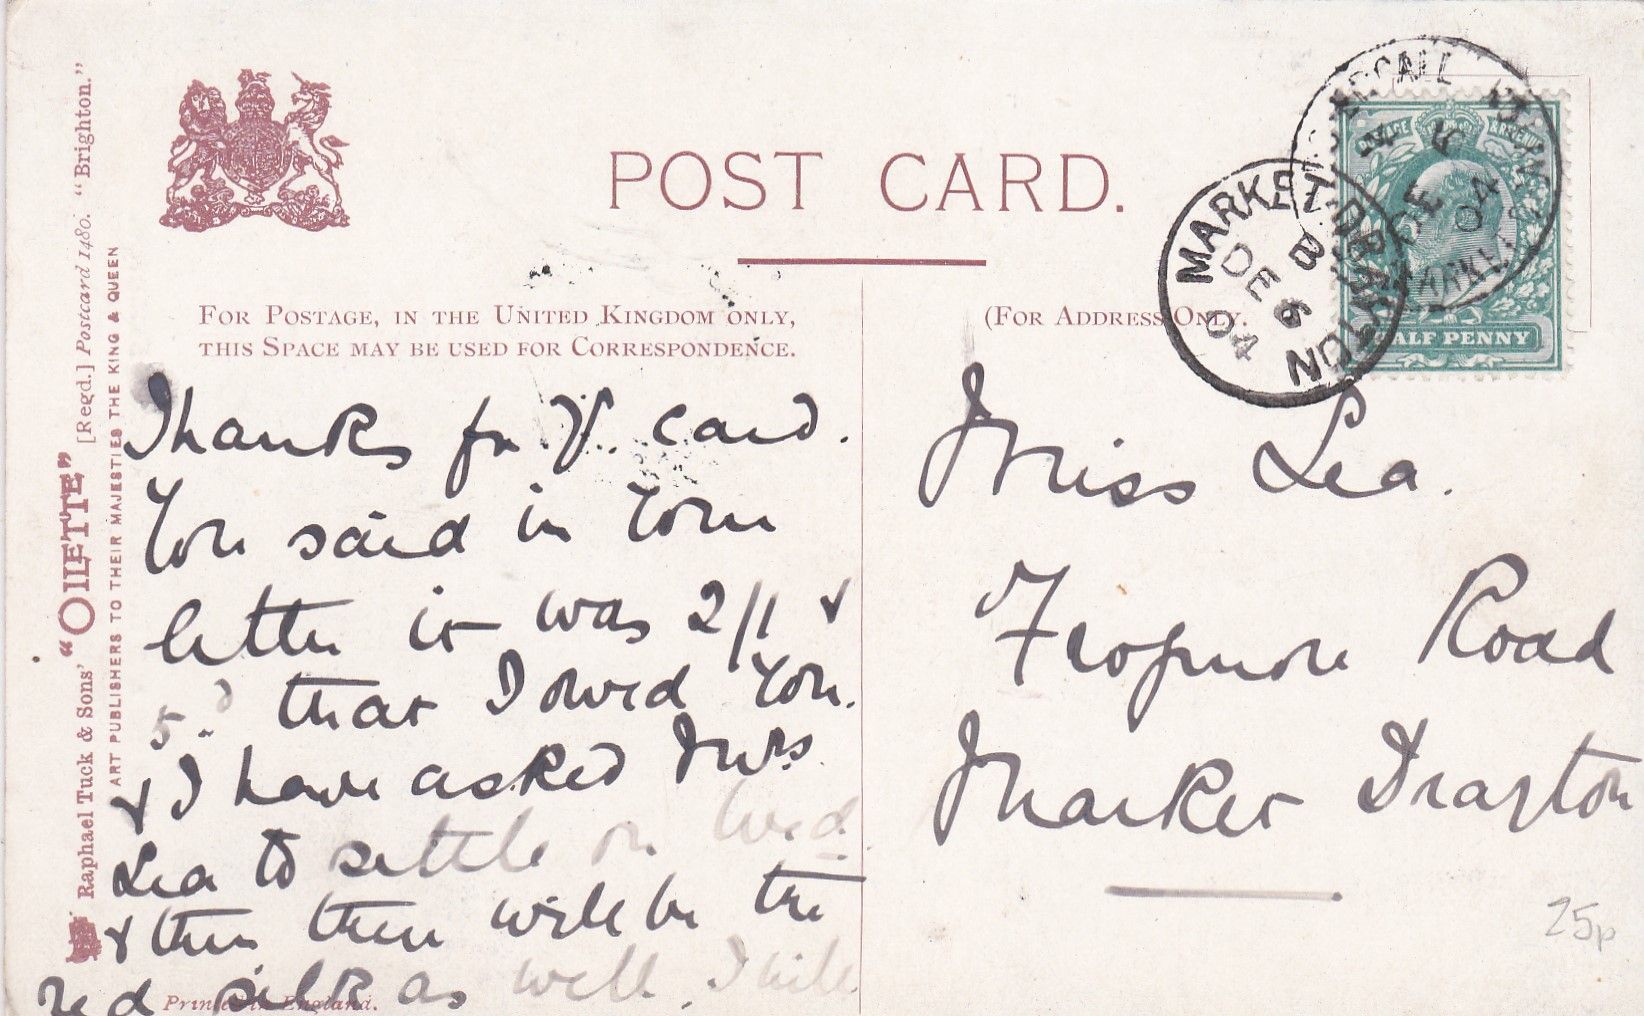 Raphael Tuck & Sons' "OILETTE" [Regd.] Postcard 1480. "Brighton."
ART PUBLISHERS TO THEIR MAJESTIES THE KING & QUEEN
POST CARD.
FOR POSTAGE, IN THE UNITED KINGDOM ONLY,
THIS SPACE MAY BE USED FOR CORRESPONDENCE.
(FOR ADDRESS ONLY.
MARKET DRAYTON
B
DE 6
04
DE
04
HALF PENNY
Thanks for yr. card.
You said in your
letter it was 2/1 &
5d that I owed you.
& I have asked Mrs
Lea to settle on Wed
& then there will be the
red silk as well. I will
Printed in England.
Miss Lea.
Frogmore Road
Market Drayton
25p